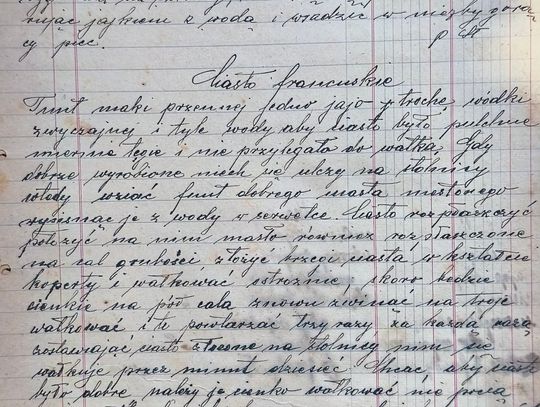 rując jajkiem z wodą i wsadzić w niezby gorą-
cy piec.
Ciasto francuskie
Funt mąki przennej jedno jajo i trochę wódki
zwyczajnej i tyle wody aby ciasto było
miernie tęgie i nie przylegało do wałka. Gdy
dobrze wyrobione niech się uleży na stolnicy
wtedy wziąć funt dobrego masła
wycisnąć je z wody w serwetce. Ciasto rozpłaszczyć
położyć na nim masło również rozpłaszczone
na cal grubości złożyć brzegi ciasta w kształcie
koperty i wałkować ostrożnie, skoro będzie
cienkie na pół cala znowu zwinąć na troje
wałkować i to powtarzać trzy razy za każdą razą
zostawiając ciasto złożone na stolnicy nim się
wałkuje przez minut dziesięć. Chcąc aby ciasto
było dobre należy je cienko wałkować nie